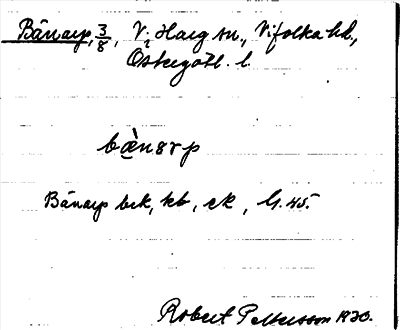 Bänarp, 3/8, V. Harg sn., Vifolka hd,
Östergötl. l.
bä̀narp
Bänarp brk, kb, ek, G. 45.
Robert Pettersson 1920.